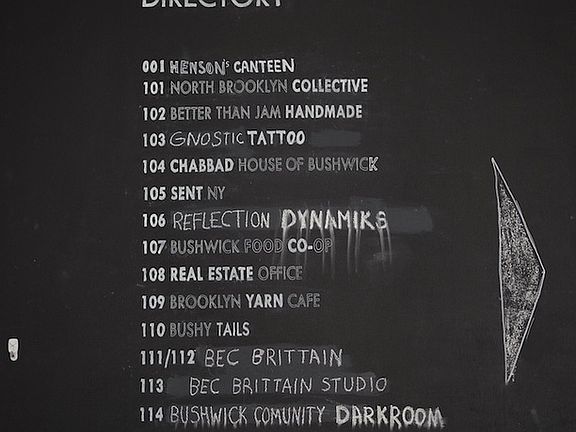 DIRECTORY
001 HENSON'S CANTEEN
101 NORTH BROOKLYN COLLECTIVE
102 BETTER THAN JAM HANDMADE
103 GNOSTIC TATTOO
104 CHABBAD HOUSE OF BUSHWICK
105 SENT NY
106 REFLECTION DYNAMIKS
107 BUSHWICK FOOD CO-OP
108 REAL ESTATE OFFICE
109 BROOKLYN YARN CAFE
110 BUSHY TAILS
111/112 BEC BRITTAIN
113 BEC BRITTAIN STUDIO
114 BUSHWICK COMUNITY DARKROOM